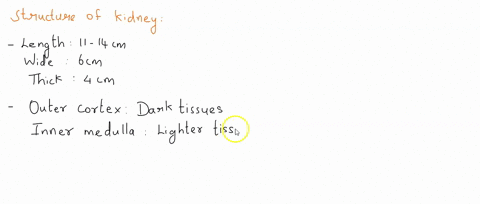 Structure of kidney:
- Length: 11-14 cm
Wide : 6cm
Thick : 4 cm
- Outer cortex: Dark tissues
Inner medulla : Lighter tiss